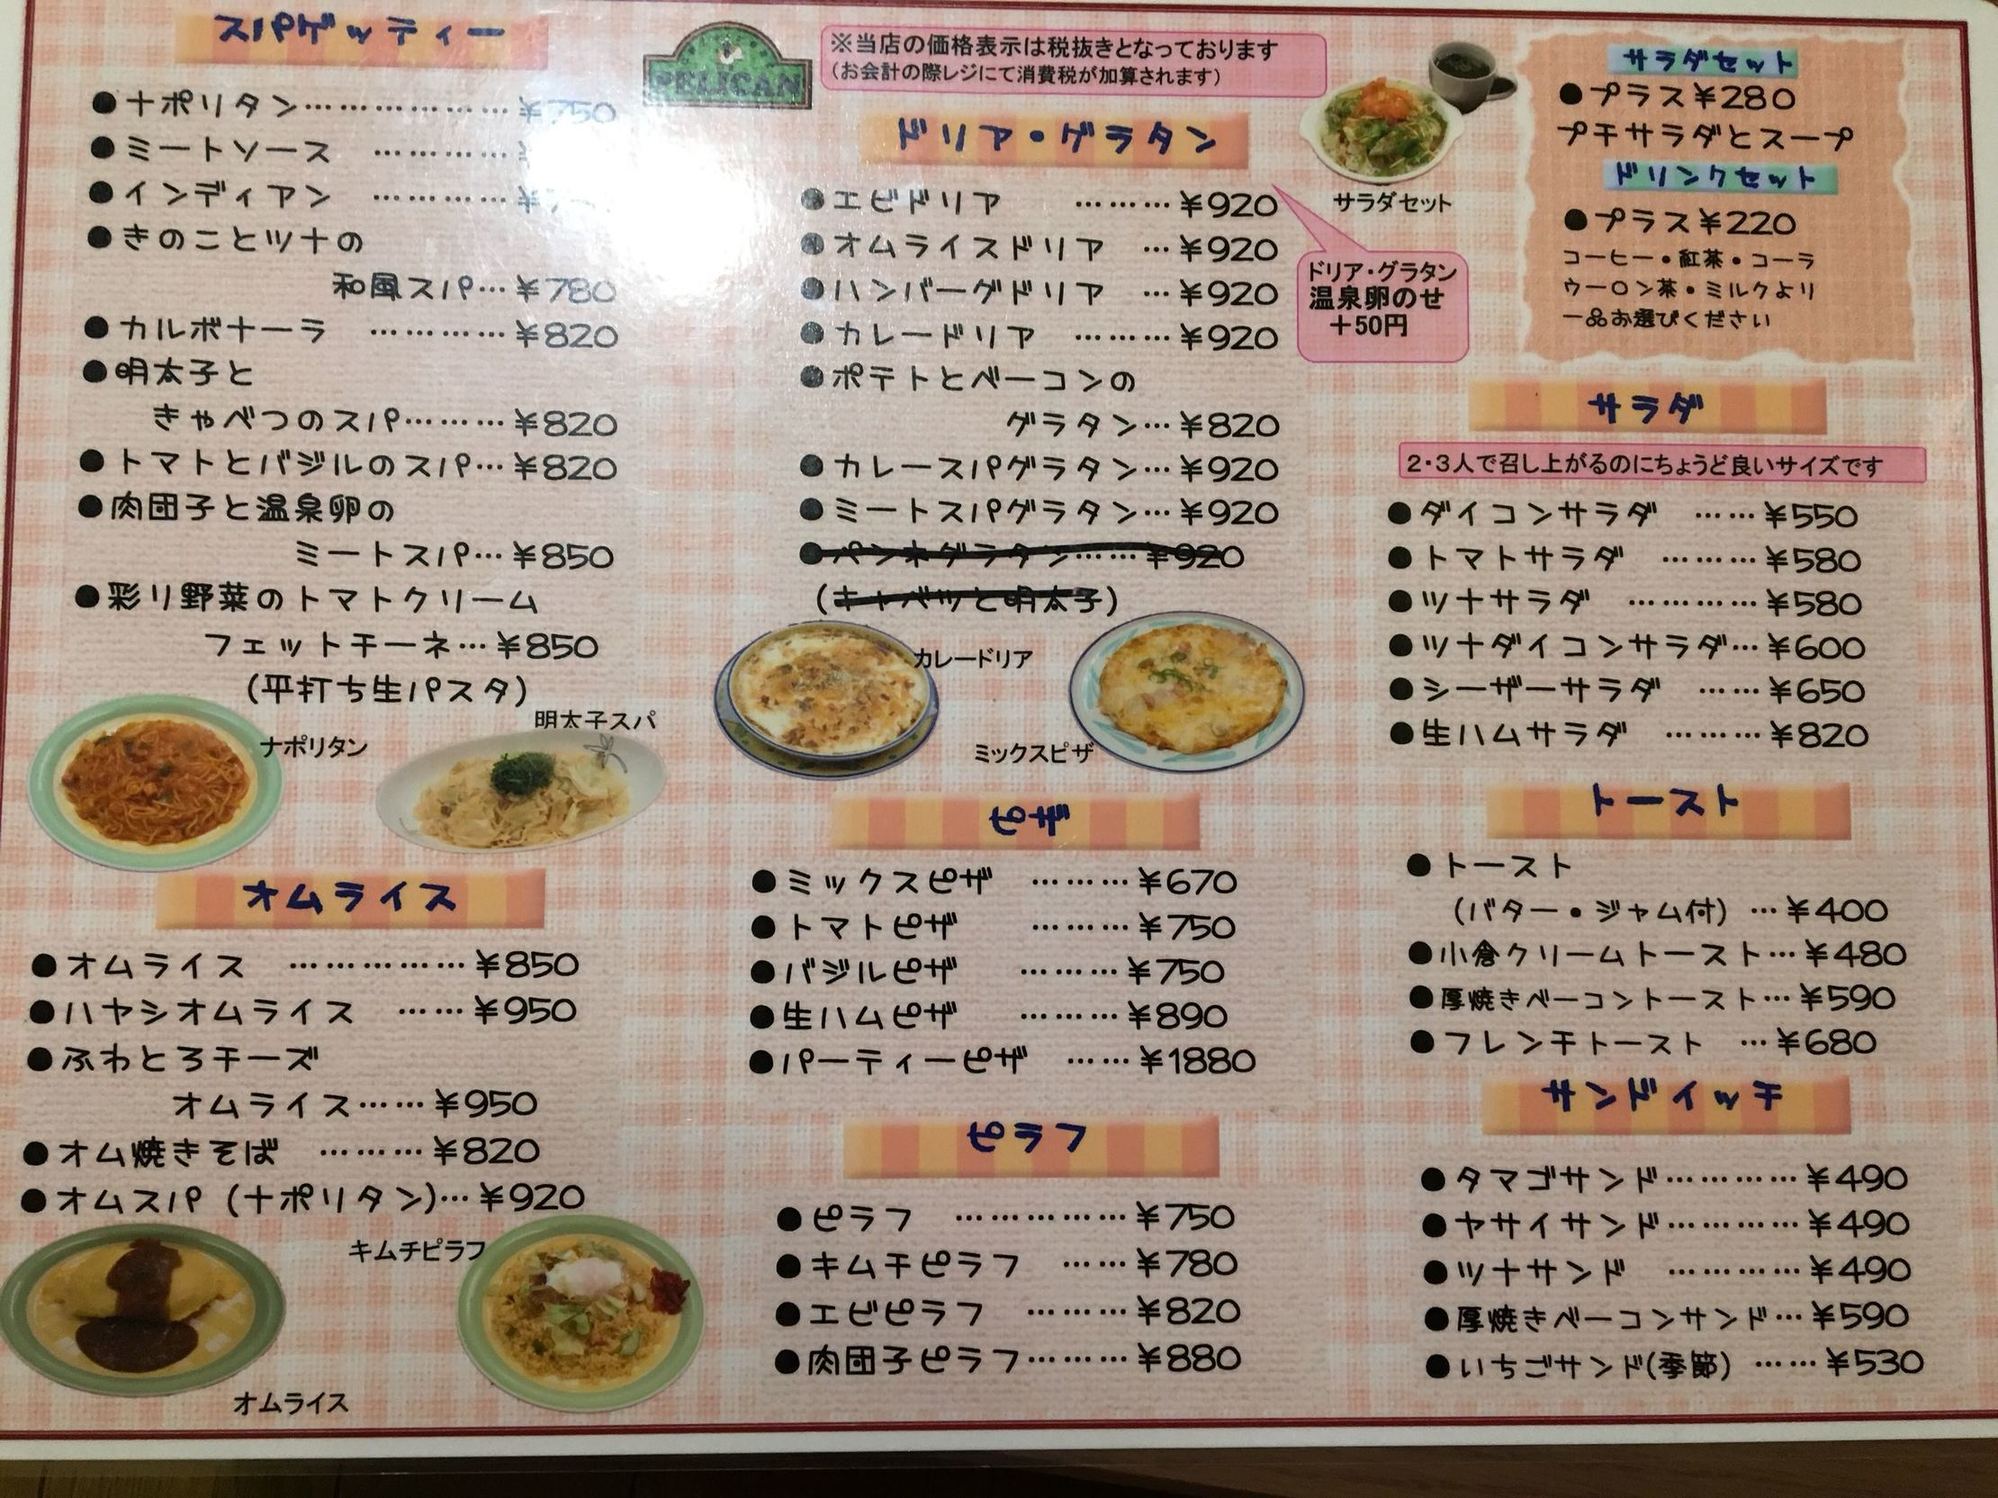 スパゲッティー
●ナポリタン………………¥750
●ミートソース …………
●インディアン …………¥
●きのことツナの
和風スパ…¥780
●カルボナーラ …………¥820
●明太子と
きゃべつのスパ………¥820
●トマトとバジルのスパ…¥820
●肉団子と温泉卵の
ミートスパ…¥850
●彩り野菜のトマトクリーム
フェットチーネ…¥850
(平打ち生パスタ)
ナポリタン
明太子スパ
オムライス
●オムライス ……………¥850
●ハヤシオムライス ……¥950
●ふわとろチーズ
オムライス……¥950
●オム焼きそば ………¥820
●オムスパ (ナポリタン)…¥920
キムチピラフ
オムライス
PELICAN
※当店の価格表示は税抜きとなっております
(お会計の際レジにて消費税が加算されます)
ドリア・グラタン
●エビドリア ………¥920
●オムライスドリア …¥920
●ハンバーグドリア …¥920
●カレードリア ………¥920
●ポテトとベーコンの
グラタン…¥820
●カレースパグラタン…¥920
●ミートスパグラタン…¥920
●パンネグラタン……¥920
(キャベツと明太子)
ドリア・グラタン
温泉卵のせ
+50円
カレードリア
ミックスピザ
ピザ
●ミックスピザ ………¥670
●トマトピザ ………¥750
●バジルピザ ………¥750
●生ハムピザ ………¥890
●パーティーピザ ……¥1880
ピラフ
●ピラフ ……………¥750
●キムチピラフ ……¥780
●エビピラフ ………¥820
●肉団子ピラフ………¥880
サラダセット
サラダセット
●プラス¥280
プチサラダとスープ
ドリンクセット
●プラス¥220
コーヒー・紅茶・コーラ
ウーロン茶・ミルクより
一品お選びください
サラダ
2・3人で召し上がるのにちょうど良いサイズです
●ダイコンサラダ ……¥550
●トマトサラダ ………¥580
●ツナサラダ …………¥580
●ツナダイコンサラダ…¥600
●シーザーサラダ ……¥650
●生ハムサラダ ………¥820
トースト
●トースト
(バター・ジャム付) …¥400
●小倉クリームトースト…¥480
●厚焼きベーコントースト…¥590
●フレンチトースト …¥680
サンドイッチ
●タマゴサンド…………¥490
●ヤサイサンド…………¥490
●ツナサンド …………¥490
●厚焼きベーコンサンド…¥590
●いちごサンド(季節) ……¥530